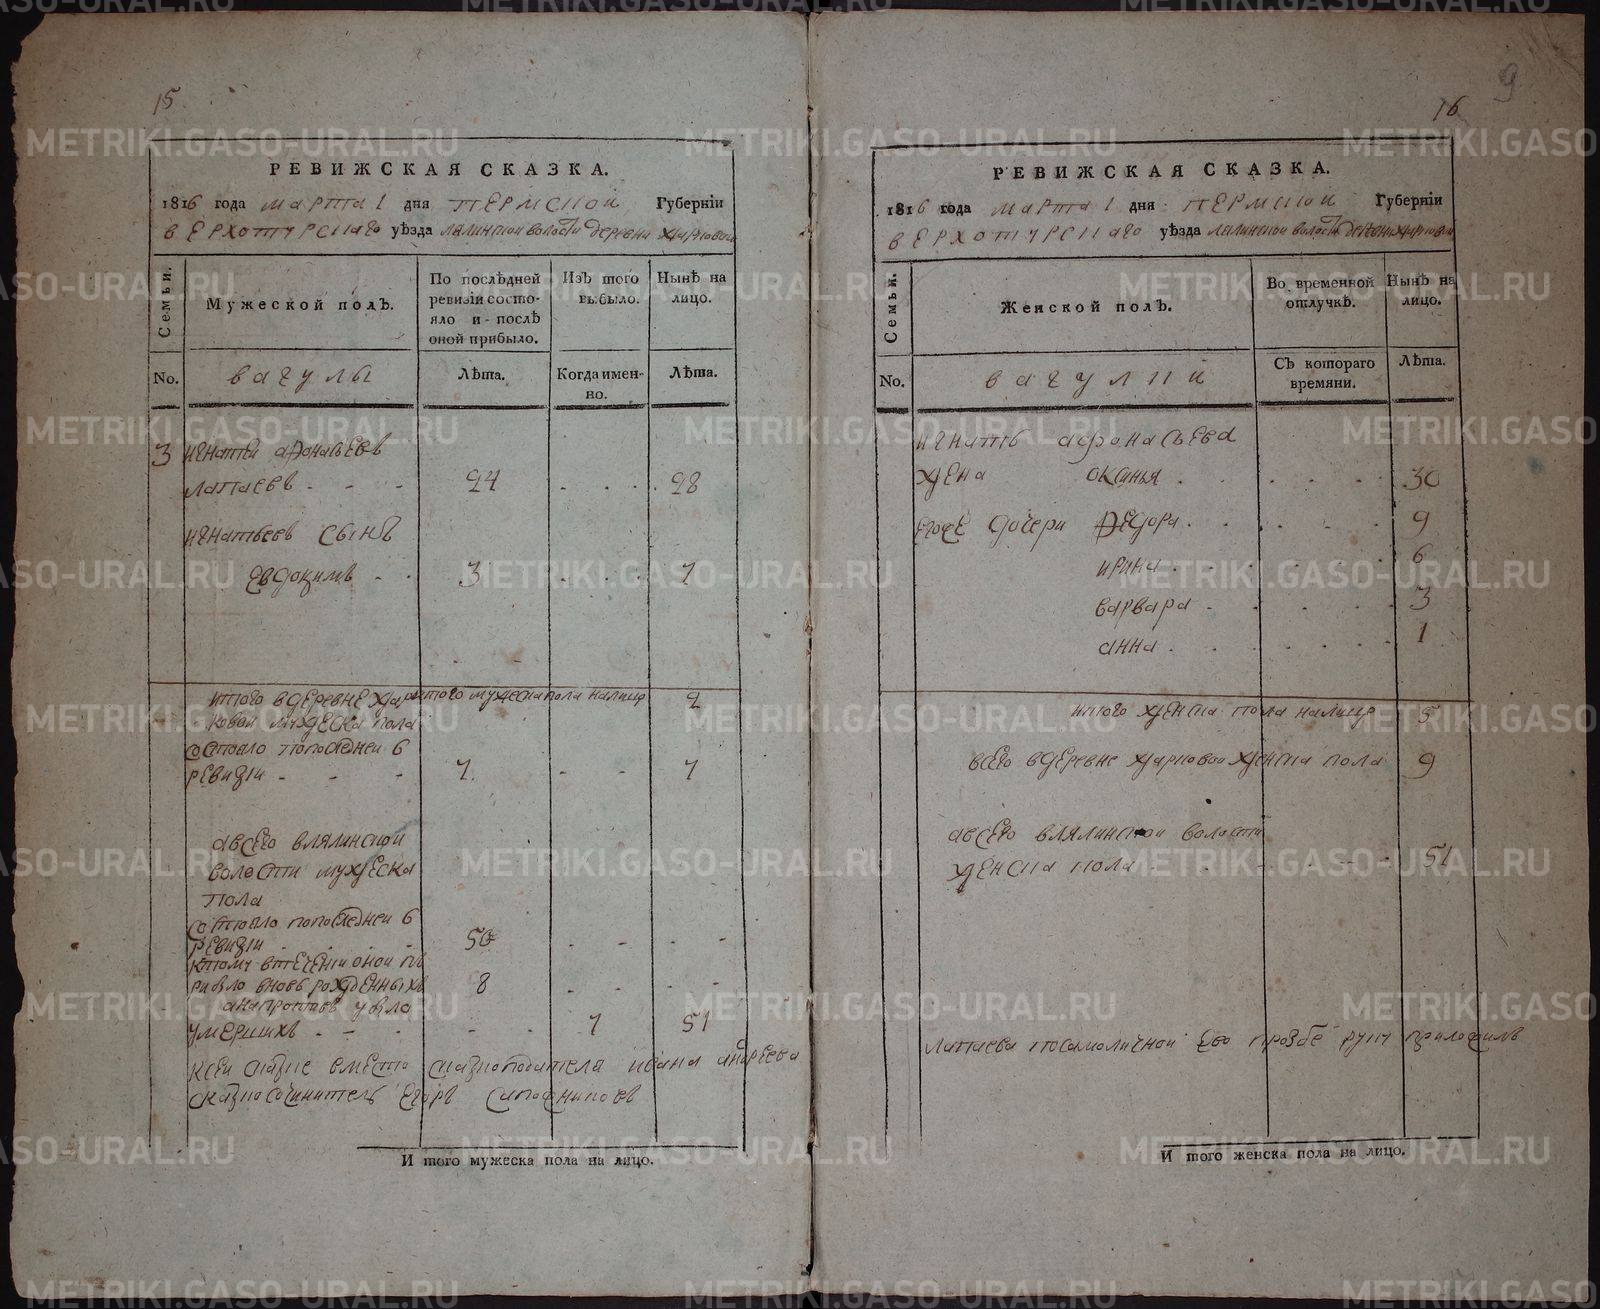 15
РЕВИЖСКАЯ СКАЗКА.
1816 года марта 1 дня пермской Губерніи
верхотурскаго уѣзда лялинской волости деревни
Семьи.
Мужеской полъ.
По послѣдней ревизіи состояло и послѣ оной прибыло.
Изъ того выбыло.
Нынѣ на лицо.
No.
вагулы
Лѣта.
Когда имен-
но.
Лѣта.
3 игнатей афонасьевъ
лапаевъ - - - 24 . . . . 28
игнатьевъ сынъ
евдокимъ - - 3 . . . 7
итого вдеревне итого мужеска пола налицо 2
ковой мужеска пола
состояло попоследней 6
ревизіи - - - 7. - - 7
авсего влялинской
волости мужеска
пола
состояло попоследней 6
ревизіи - - - - 50 - - - -
ктому втеченіи оной пъ
рибыло вновь рожденныхъ 8 - - - -
анапротивъ убыло
умершихъ - - - - - 7 51
ксеи сказке вместо сказкоподателя ивана андреева
сказкосочинитель Егоръ сапожниковъ
И того мужеска пола на лицо.
9
16
РЕВИЖСКАЯ СКАЗКА.
1816 года марта 1 дня пермской Губерніи
верхотурскаго уѣзда лялинской волости деревни
Семьи.
Женской полъ.
Во временной
отлучкѣ.
Нынѣ на
лицо.
No.
вагулки
Съ котораго
времяни.
Лѣта.
игнатъ афонасьева
жена оксинья . . . . . . 30
егоже дочери федора . . . . . 9
ирина . . . . . . 6
варвара . . . . . 3
анна . . . . . . 1
итого женска пола налицо 5
всего вдеревне женска пола 9
авсего влялинской волости
женска пола - - - - 51
лапаева посамоличной его прозбе руку приложилъ
И того женска пола на лицо.
METRIKI.GASO-URAL.RU